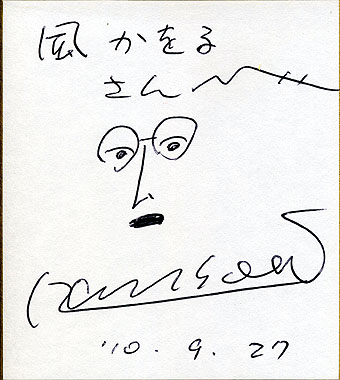 風 かをる
さん
'10. 9. 27